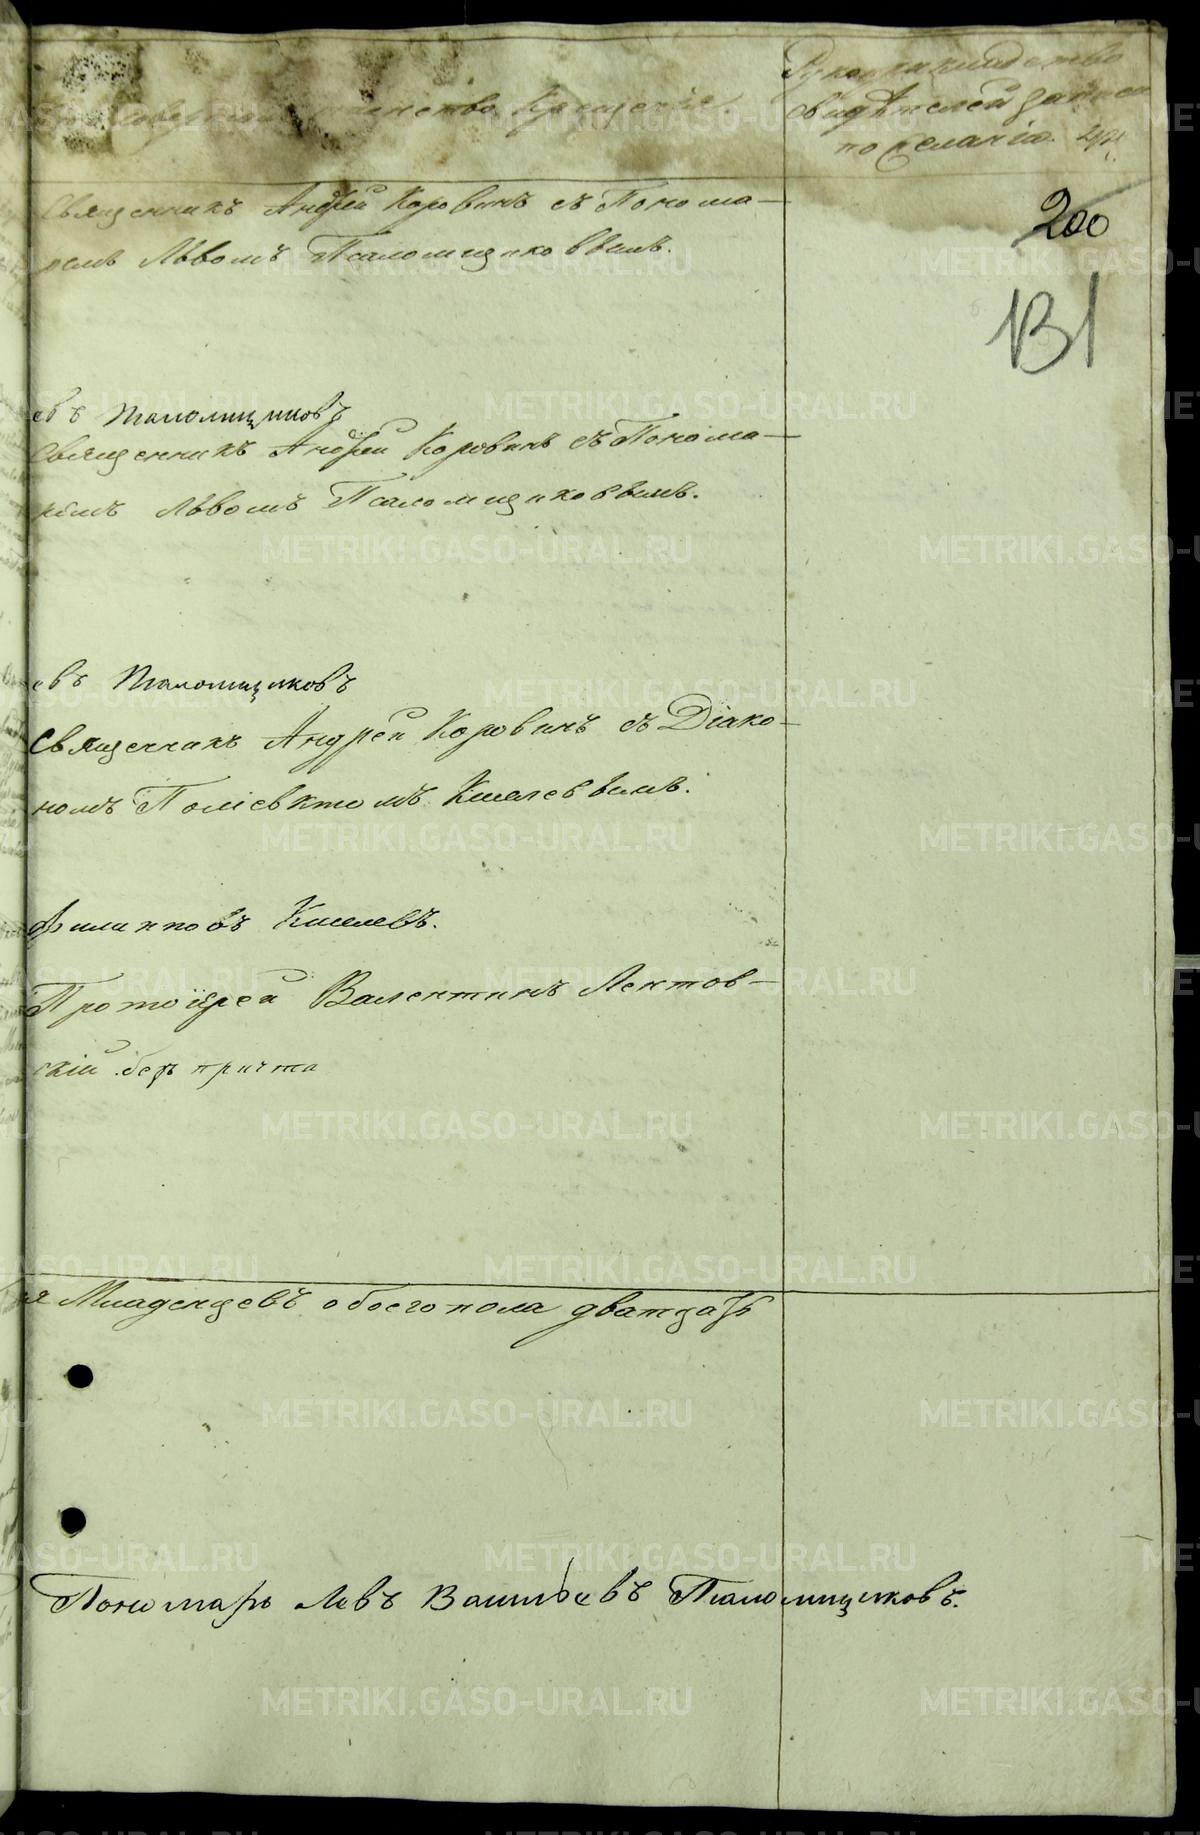 таинство Крещенія.
Рукоприкладство
свидѣтелей записи
по желанію.
Священникъ Андрей Коровинъ съ Понома-
200
ремъ Львомъ Псаломщиковвымъ.
131
евъ Псаломщиковъ
Священникъ Андрей Коровинъ съ Понома-
ремъ Львомъ Псаломщиковвымъ.
евъ Псаломщиковъ
Священникъ Андрей Коровинъ съ Діако-
номъ Поліевктомъ Киселеввымъ.
Филипповъ Киселевъ.
Протоіерей Валентинъ Лектов-
скій безъ причта
Младенцевъ обоего пола дватцать
Пономарь Левъ Васильевъ Псаломщиковъ.
METRIKI.GASO-URAL.RU